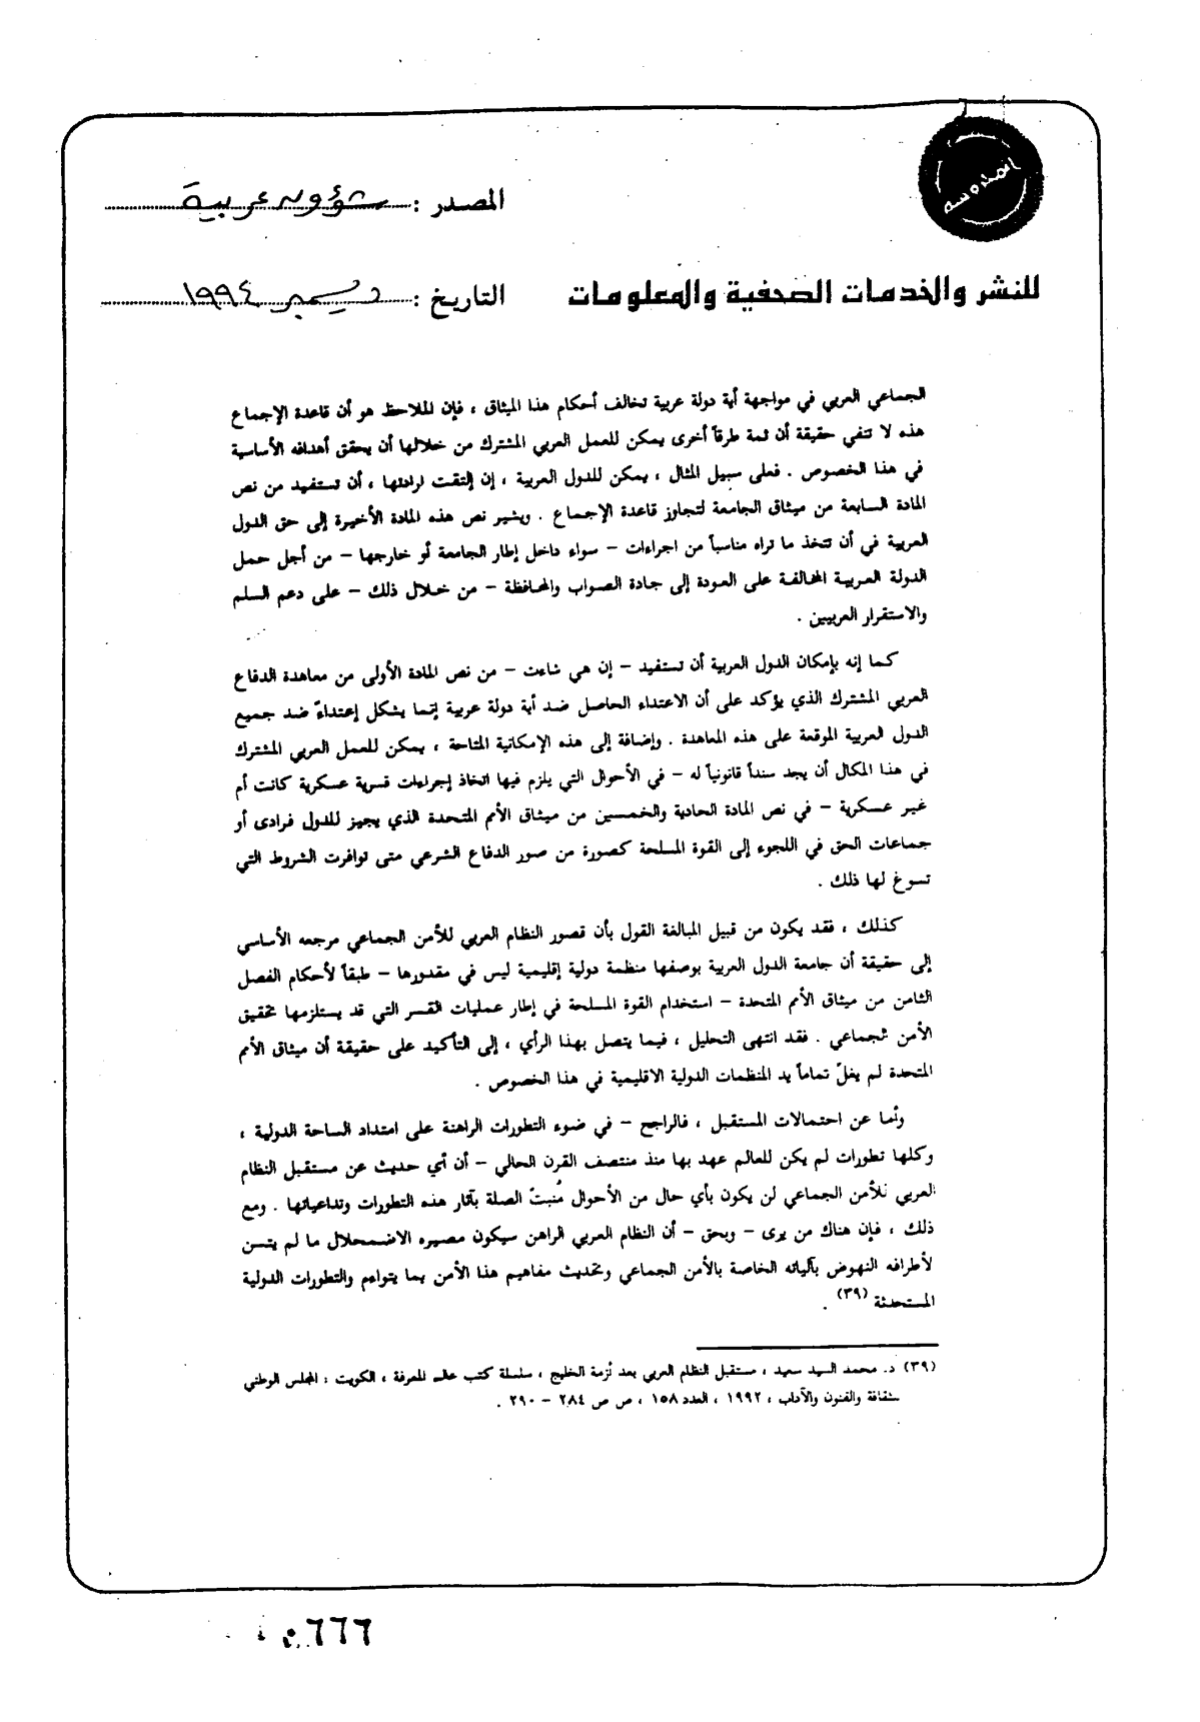 المصدر : شؤون عربية
للنشر والخدمات الصحفية والمعلومات
التاريخ : ديسمبر ١٩٩٤
الجماعي العربي في مواجهة أية دولة عربية تخالف أحكام هذا الميثاق ، فإن الملاحظ هو أن قاعدة الإجماع
هذه لا تنفي حقيقة أن ثمة طرقاً أخرى يمكن للعمل العربي المشترك من خلالها أن يحقق أهدافه الأساسية
في هذا الخصوص . فعلى سبيل المثال ، يمكن للدول العربية ، إن إلتقت ارادتها ، أن تستفيد من نص
المادة السابعة من ميثاق الجامعة لتجاوز قاعدة الإجماع . ويشير نص هذه المادة الأخيرة إلى حق الدول
العربية في أن تتخذ ما تراه مناسباً من اجراءات – سواء داخل إطار الجامعة أو خارجها – من أجل حمل
الدولة العربية المخالفة على العودة إلى جادة الصواب والمحافظة – من خلال ذلك – على دعم السلم
والاستقرار العربيين .
كما إنه بإمكان الدول العربية أن تستفيد – إن هي شاءت – من نص المادة الأولى من معاهدة الدفاع
العربي المشترك الذي يؤكد على أن الاعتداء الحاصل ضد أية دولة عربية إنما يشكل إعتداءً ضد جميع
الدول العربية الموقعة على هذه المعاهدة . وإضافة إلى هذه الإمكانية المتاحة ، يمكن للعمل العربي المشترك
في هذا المكال أن يجد سنداً قانونياً له – في الأحوال التي يلزم فيها اتخاذ إجراءات قسرية عسكرية كانت أم
غير عسكرية – في نص المادة الحادية والخمسين من ميثاق الأمم المتحدة الذي يجيز للدول فرادى أو
جماعات الحق في اللجوء إلى القوة المسلحة كصورة من صور الدفاع الشرعي متى توافرت الشروط التي
تسوغ لها ذلك .
كذلك ، فقد يكون من قبيل المبالغة القول بأن قصور النظام العربي للأمن الجماعي مرجعه الأساسي
إلى حقيقة أن جامعة الدول العربية بوصفها منظمة دولية إقليمية ليس في مقدورها – طبقاً لأحكام الفصل
الثامن من ميثاق الأمم المتحدة – استخدام القوة المسلحة في إطار عمليات القسر التي قد يستلزمها تحقيق
الأمن الجماعي . فقد انتهى التحليل ، فيما يتصل بهذا الرأي ، إلى التأكيد على حقيقة أن ميثاق الأمم
المتحدة لم يغلّ تماماً يد المنظمات الدولية الاقليمية في هذا الخصوص .
وأما عن احتمالات المستقبل ، فالراجح – في ضوء التطورات الراهنة على امتداد الساحة الدولية ،
وكلها تطورات لم يكن للعالم عهد بها منذ منتصف القرن الحالي – أن أي حديث عن مستقبل النظام
العربي للأمن الجماعي لن يكون بأي حال من الأحوال مُنبتّ الصلة بآثار هذه التطورات وتداعياتها . ومع
ذلك ، فإن هناك من يرى – وبحق – أن النظام العربي الراهن سيكون مصيره الاضمحلال ما لم يتسن
لأطرافه النهوض بآلياته الخاصة بالأمن الجماعي وتحديث مفاهيم هذا الأمن بما يتواءم والتطورات الدولية
المستحدثة (٣٩) .
(٣٩) د. محمد السيد سعيد ، مستقبل النظام العربي بعد أزمة الخليج ، سلسلة كتب عالم المعرفة ، الكويت : المجلس الوطني
للثقافة والفنون والآداب ، ١٩٩٢ ، العدد ١٥٨ ، ص ص ٢٨٤ – ٢٩٠ .